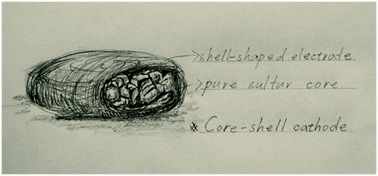 shell-shaped electrode
pure sulfur core.
* Core-shell cathode